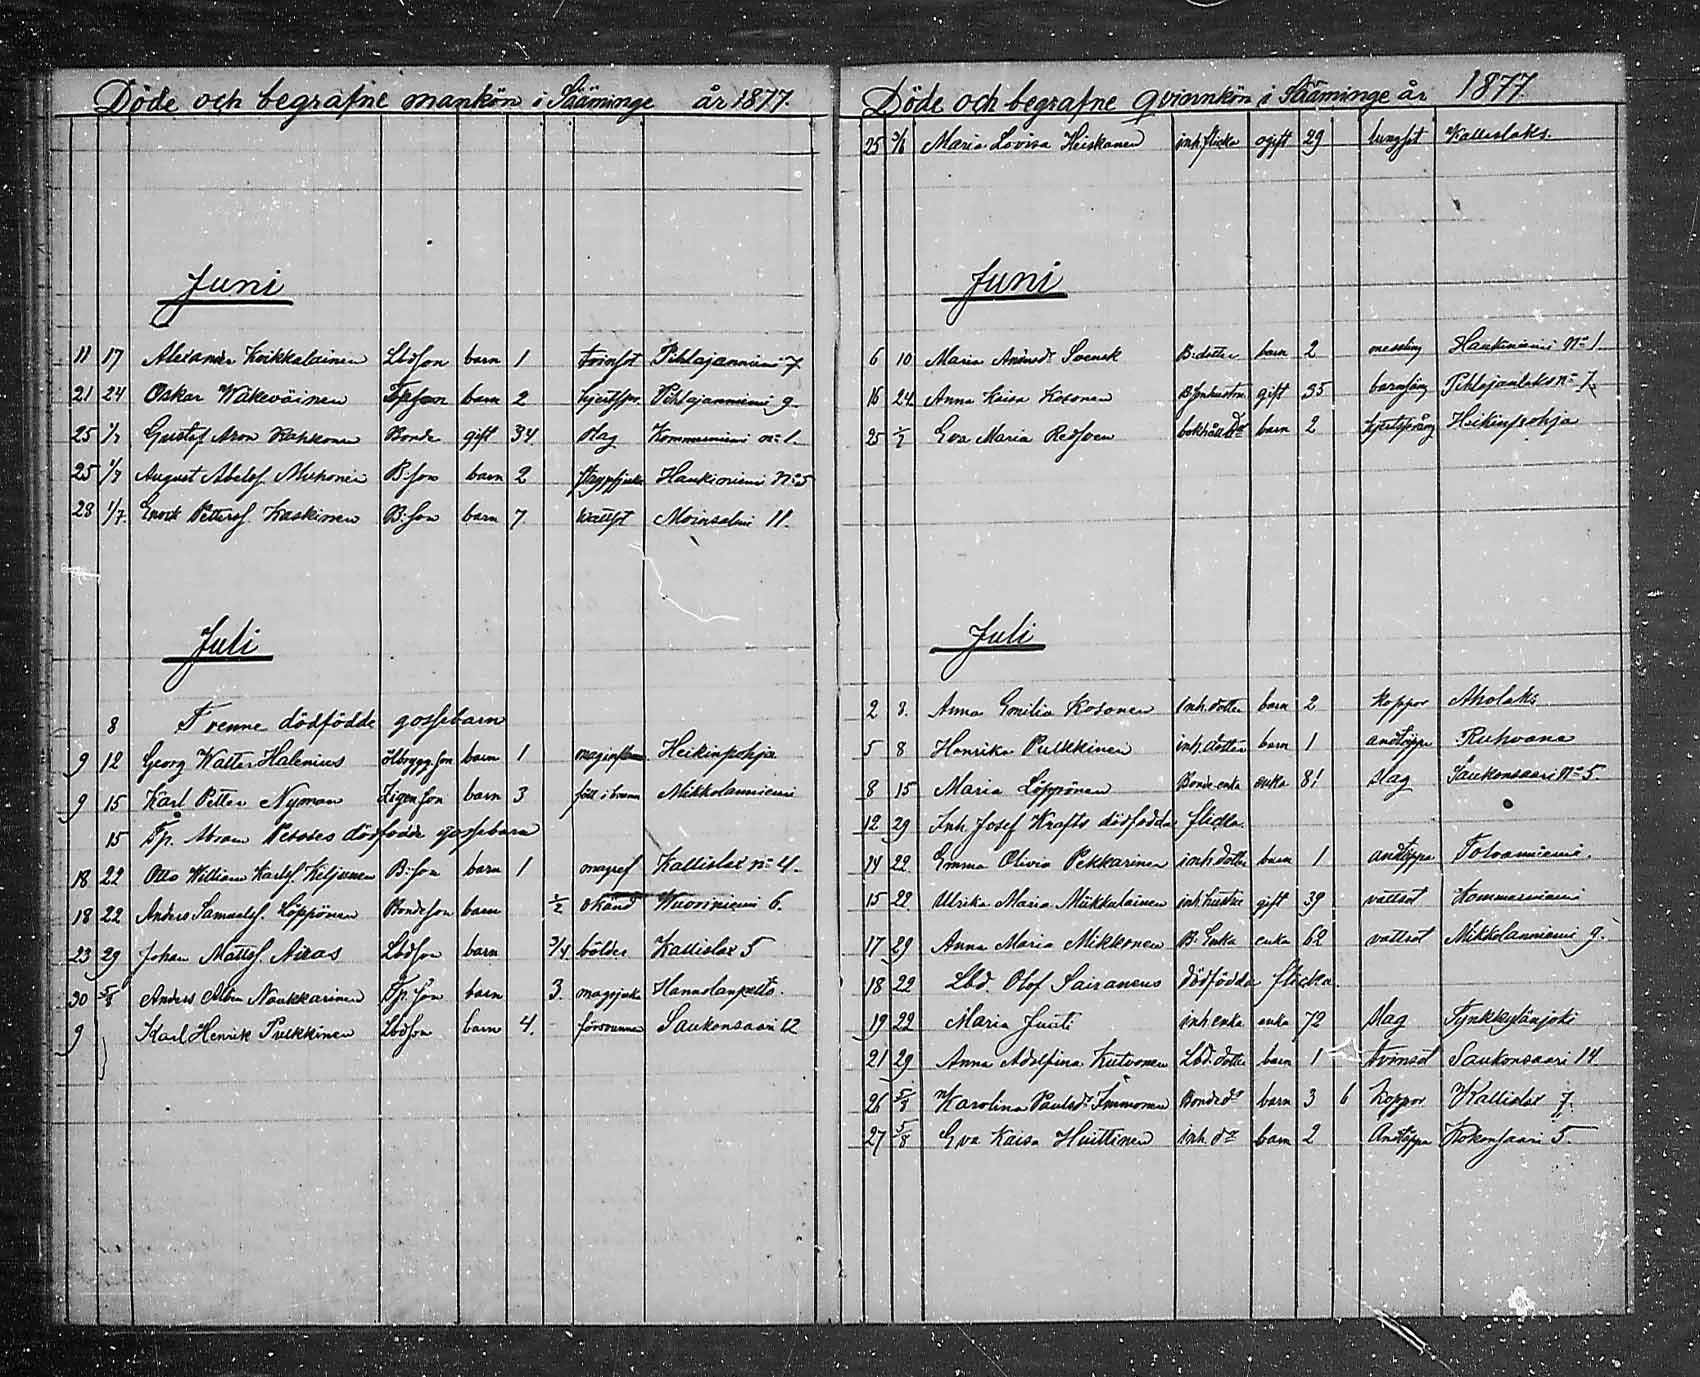 Döde och begrafne mankön i Sääminge år 1877.
Juni
11 17 Alexander Koikkalainen Lbdson barn 1 Tvinsot Pihlajanniemi 7
21 24 Oskar Wäkeväinen Tpson barn 2 Pihlajanniemi 9.
25 1/7 Gustaf Aron bonde gift 34. slag Kommerniemi no 1.
25 1/7 August Abelsf. Muhonen B:son barn 2 Haukiniemi No 5
28 1/7 Enock Pettersf. Kaskinen B:Son barn 7. Moinsalmi 11.
Juli
8 Trenne dödfödde gossebarn
9 12 Georg Walter Halenius ölbrygg.son barn 1 Heikinpohja
9 15 Karl Petter Nyman Zigen.son barn 3 Mikkolanniemi
15 Tp. Abram dödfödde gossebarn
18 22 Otto William Karlsf. Kiljunen B:son barn 1 magref Kallislax no 4.
18 22 Anders Samuelsf. Löppönen Bondeson barn 1/2 okänd Wuoriniemi 6.
23 29 Johan Mattsf Lbdson barn 3/4 bölder Kallislax 5
30 5/8 Anders Albin Naukkarinen Tp.son barn 3. magsjuka
9 Karl Henrik Pulkkinen Lbdson barn 4. försvunnen Saukonsaari 12
Döde och begrafne Qvinnkön i Sääminge år 1877.
25 3/6 Maria Lovisa Heiskanen inh.flicka ogift 29 lungsot Kallislaks.
Juni
6 10 Maria Svensk B:dotter barn 2 messling Haukiniemi No 1.
16 24 Anna Kaisa Kosonen gift 35 barnsäng Pihlajanlaks no 7.
25 1/7 Eva Maria barn 2 Heikinpohja
Juli
2 8. Anna Emilia Kosonen Inh.dotter barn 2 koppor Aholaks
5 8 Henrika Pulkkinen inh.dotter barn 1 andtäppa Ruhvana
8 15 Maria Löppönen Bonde enka enka 81 slag Saukonsaari No 5.
12 29 Inh. Josef Krafts dödfödda flicka.
14 22. Emma Olivia Pekkarinen inh.dotter barn 1 andtäppa Tolvaniemi.
15 22. Ulrika Maria Mukkulainen inh.hustru gift 39 vattsot Kommerniemi
17 29 Anna Maria Mikkonen B:Enka enka 62 vattsot Mikkolanniemi 9.
18 22 Lbd. Olof Sairanens dödfödda flicka.
19 22 Maria Juuti inh.enka enka 72 slag Tynkkylänjoki
21 29 Anna Adolfina Kutvonen Lbd:dotter barn 1 Tvinsot Saukonsaari 14.
26 5/8 Karolina Paulsdr Immonen Bondedr barn 3 6 koppor Kallislax 7.
27 5/8 Eva Kaisa Huittinen inh. dr barn 2 Andtäppa Kokonsaari 5.